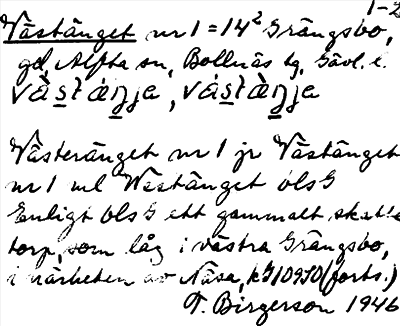 1-2
Västänget nr 1 = 14² Grängsbo,
gd, Alfta sn, Bollnäs tg, Gävl. l.
Västeränget nr 1 jr Västänget
nr 1 ml Westänget OlsG
Enligt OlsG ett gammalt skatte
torp, som låg i västra Grängsbo,
i närheten av Näsa, (forts.)
T. Birgerson 1946